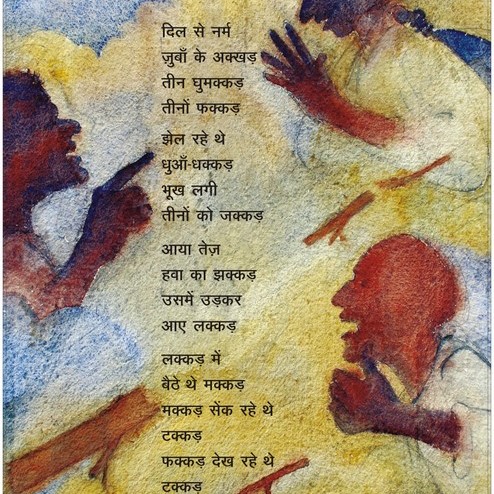 दिल से नर्म
ज़ुबाँ के अक्खड़
तीन घुमक्कड़
तीनों फक्कड़
झेल रहे थे
धुआँ-धक्कड़
भूख लगी
तीनों को जक्कड़
आया तेज़
हवा का झक्कड़
उसमें उड़कर
आए लक्कड़
लक्कड़ में
बैठे थे मक्कड़
मक्कड़ सेंक रहे थे
टक्कड़
फक्कड़ देख रहे थे
टक्कड़